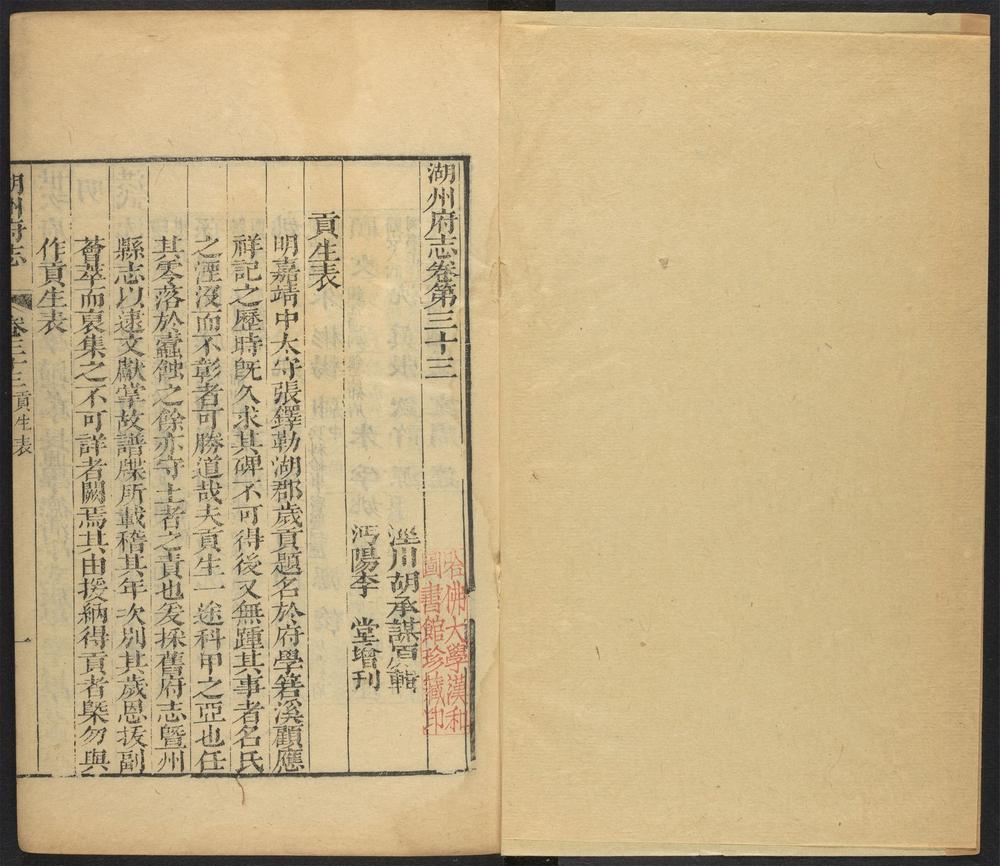 湖州府志卷第三十三
涇川胡承謀原輯
沔陽李 堂增刊
哈佛大學漢和
圖書館珍藏印
貢生表
明嘉靖中太守張鐸勒湖郡歲貢題名於府學箬溪顧應
祥記之歷時旣久求其碑不可得後又無踵其事者名氏
之湮沒而不彰者可勝道哉夫貢生一途科甲之亞也任
其零落於蠹蝕之餘亦守土者之責也爰採舊府志暨州
縣志以逮文獻掌故譜牒所載稽其年次別其歲恩拔副
薈萃而裒集之不可詳者闕焉其由援納得貢者槩勿與
作貢生表
湖州府志
卷三十三 貢生表
一